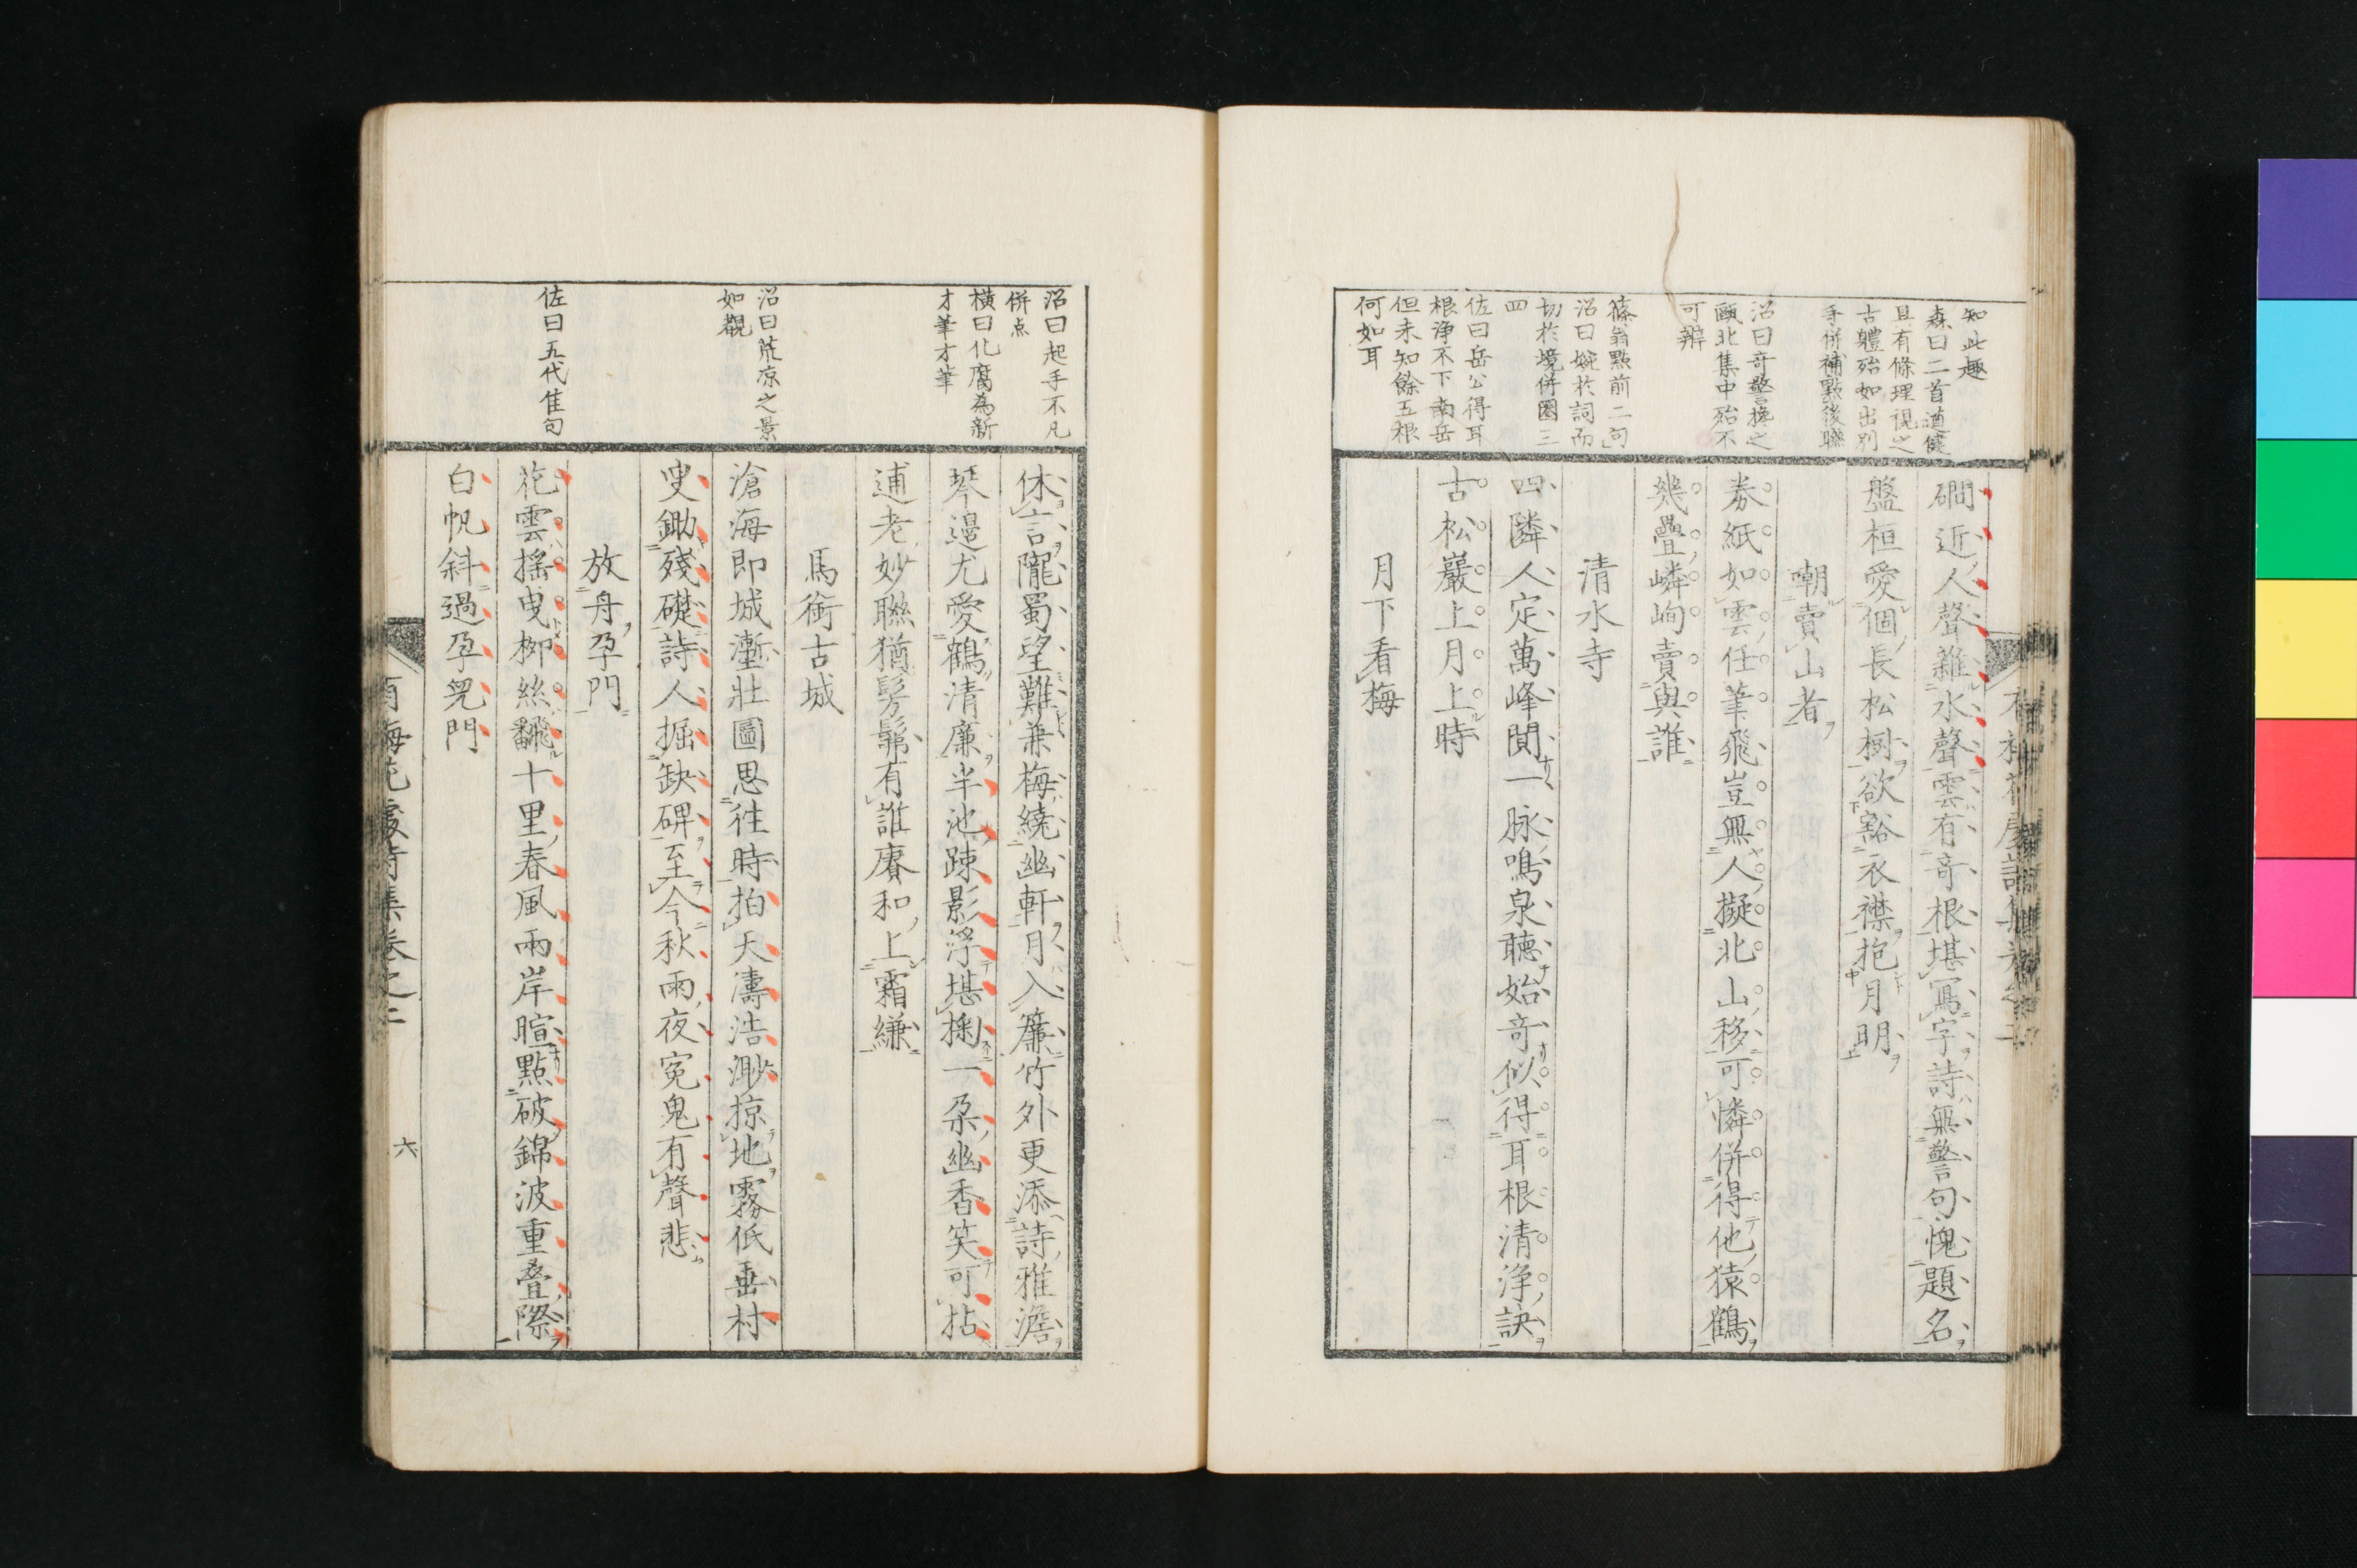 知此趣
森曰二首遒健
且有條理視之
古體殆如出別
手併補點後聯
沼曰奇警搀之
甌北集中殆不
可辨
篠翁點前二句
沼曰婉於詞而
切於境併圈三
四
佐曰岳公得耳
根浄不下南岳
但未知餘五根
何如耳
磵近人聲雜水聲雲有奇根堪寫字詩無警句愧題名
盤桓愛個長松樹欲豁衣襟抱月明
嘲賣山者
券紙如雲任筆飛豈無人擬北山移可憐併得他猿鶴
幾疊嶙峋賣與誰
清水寺
四隣人定萬峰閴一脉鳴泉聴始奇似得耳根清浄訣
古松巖上月上時
月下看梅
沼曰起手不凡
併点
横曰化腐為新
才筆才筆
沼曰荒凉之景
如覩
佐曰五代隹句
休言隴蜀望難兼梅繞幽軒月入簾竹外更添詩雅澹
琴邉尤愛鶴清廉半池踈影浮堪掬一朶幽香笑可拈
逋老妙聯猶髣髴有誰賡和上霜縑
馬衛古城
滄海即城壍壯圖思徃時拍天濤浩渺掠地霧低垂村
叟鋤殘礎詩人掘缺碑至今秋雨夜寃鬼有聲悲
放舟孕門
花雲揺曳栁絲飜十里春風兩岸暄點破錦波重疊際
白帆斜過孕兒門
有梅花處詩集卷之二
六